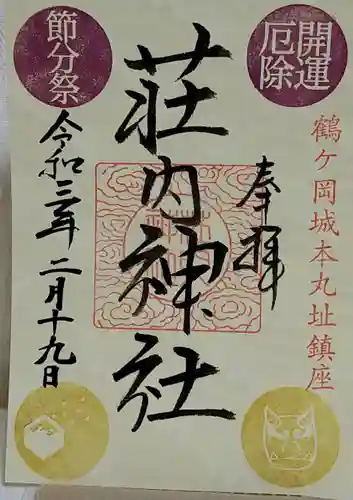 開運
厄除
鶴ヶ岡城本丸址鎮座
奉拝
荘内神社
節分祭
令和三年二月十九日